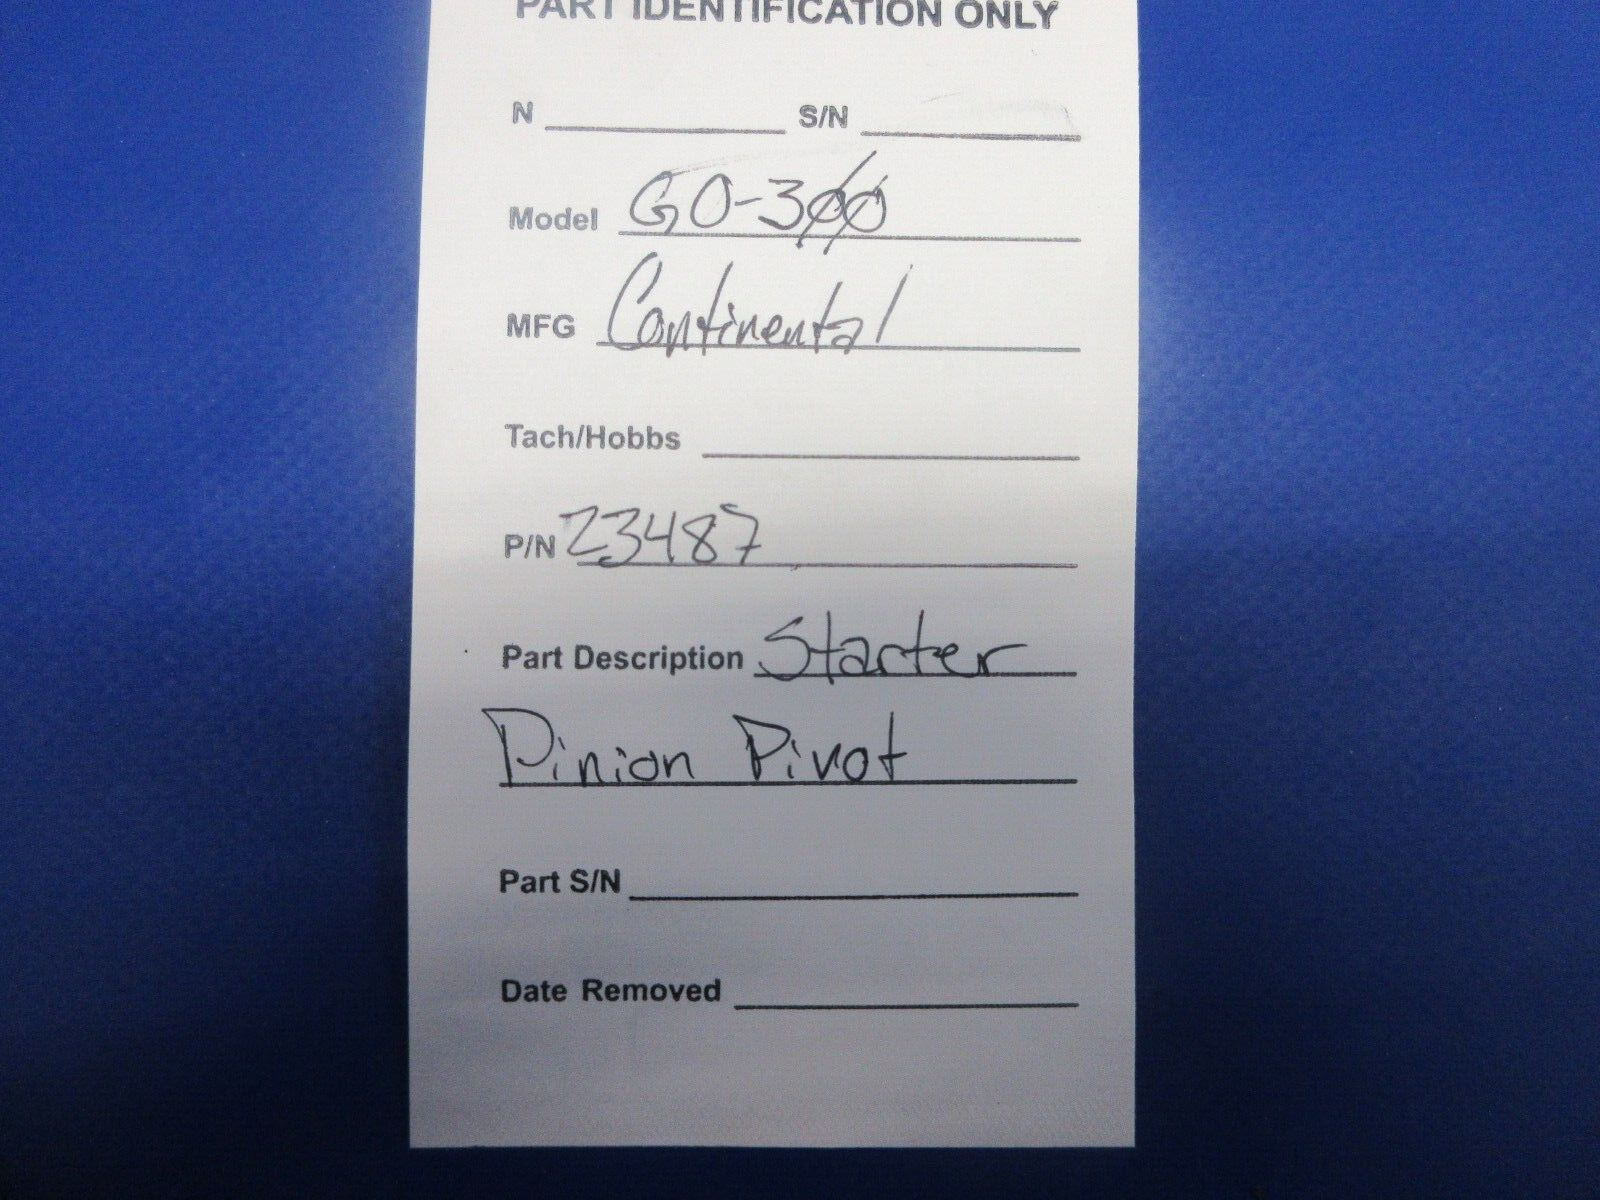 PART IDENTIFICATION ONLY
N S/N
Model GO-300
MFG Continental
Tach/Hobbs
P/N 23487
Part Description Starter
Pinion Pivot
Part S/N
Date Removed